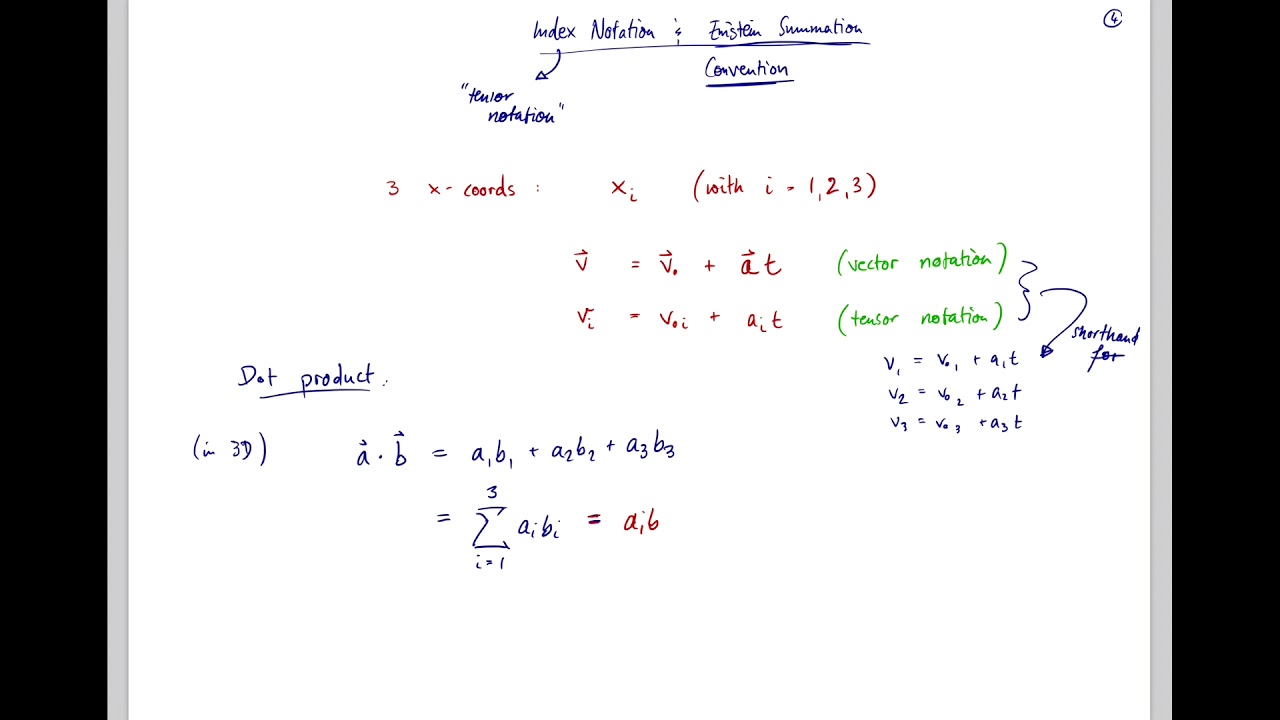 ④
Index Notation & Einstein Summation
Convention
"tensor
notation"
3 x-coords : xᵢ (with i = 1,2,3)
v⃗ = v⃗₀ + a⃗t (vector notation)
vᵢ = v₀ᵢ + aᵢt (tensor notation)
shorthand
for
v₁ = v₀₁ + a₁t
v₂ = v₀₂ + a₂t
v₃ = v₀₃ + a₃t
Dot product.
(in 3D) a⃗ · b⃗ = a₁b₁ + a₂b₂ + a₃b₃
= ∑ᵢ₌₁³ aᵢbᵢ = aᵢb